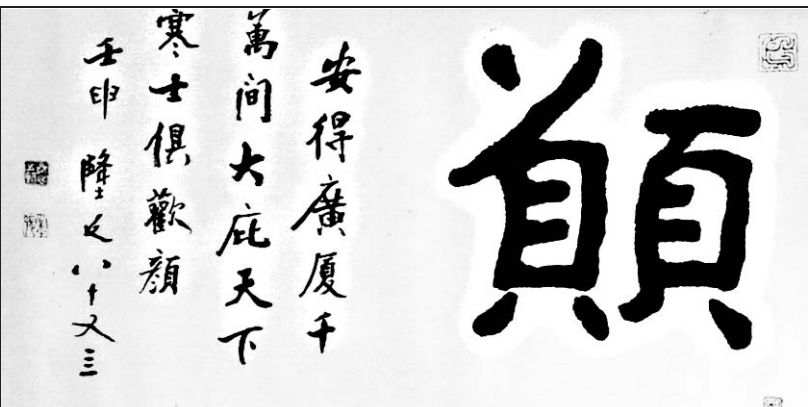 願
安得廣厦千
萬間大庇天下
寒士俱歡顔
壬申 隆延八十又三